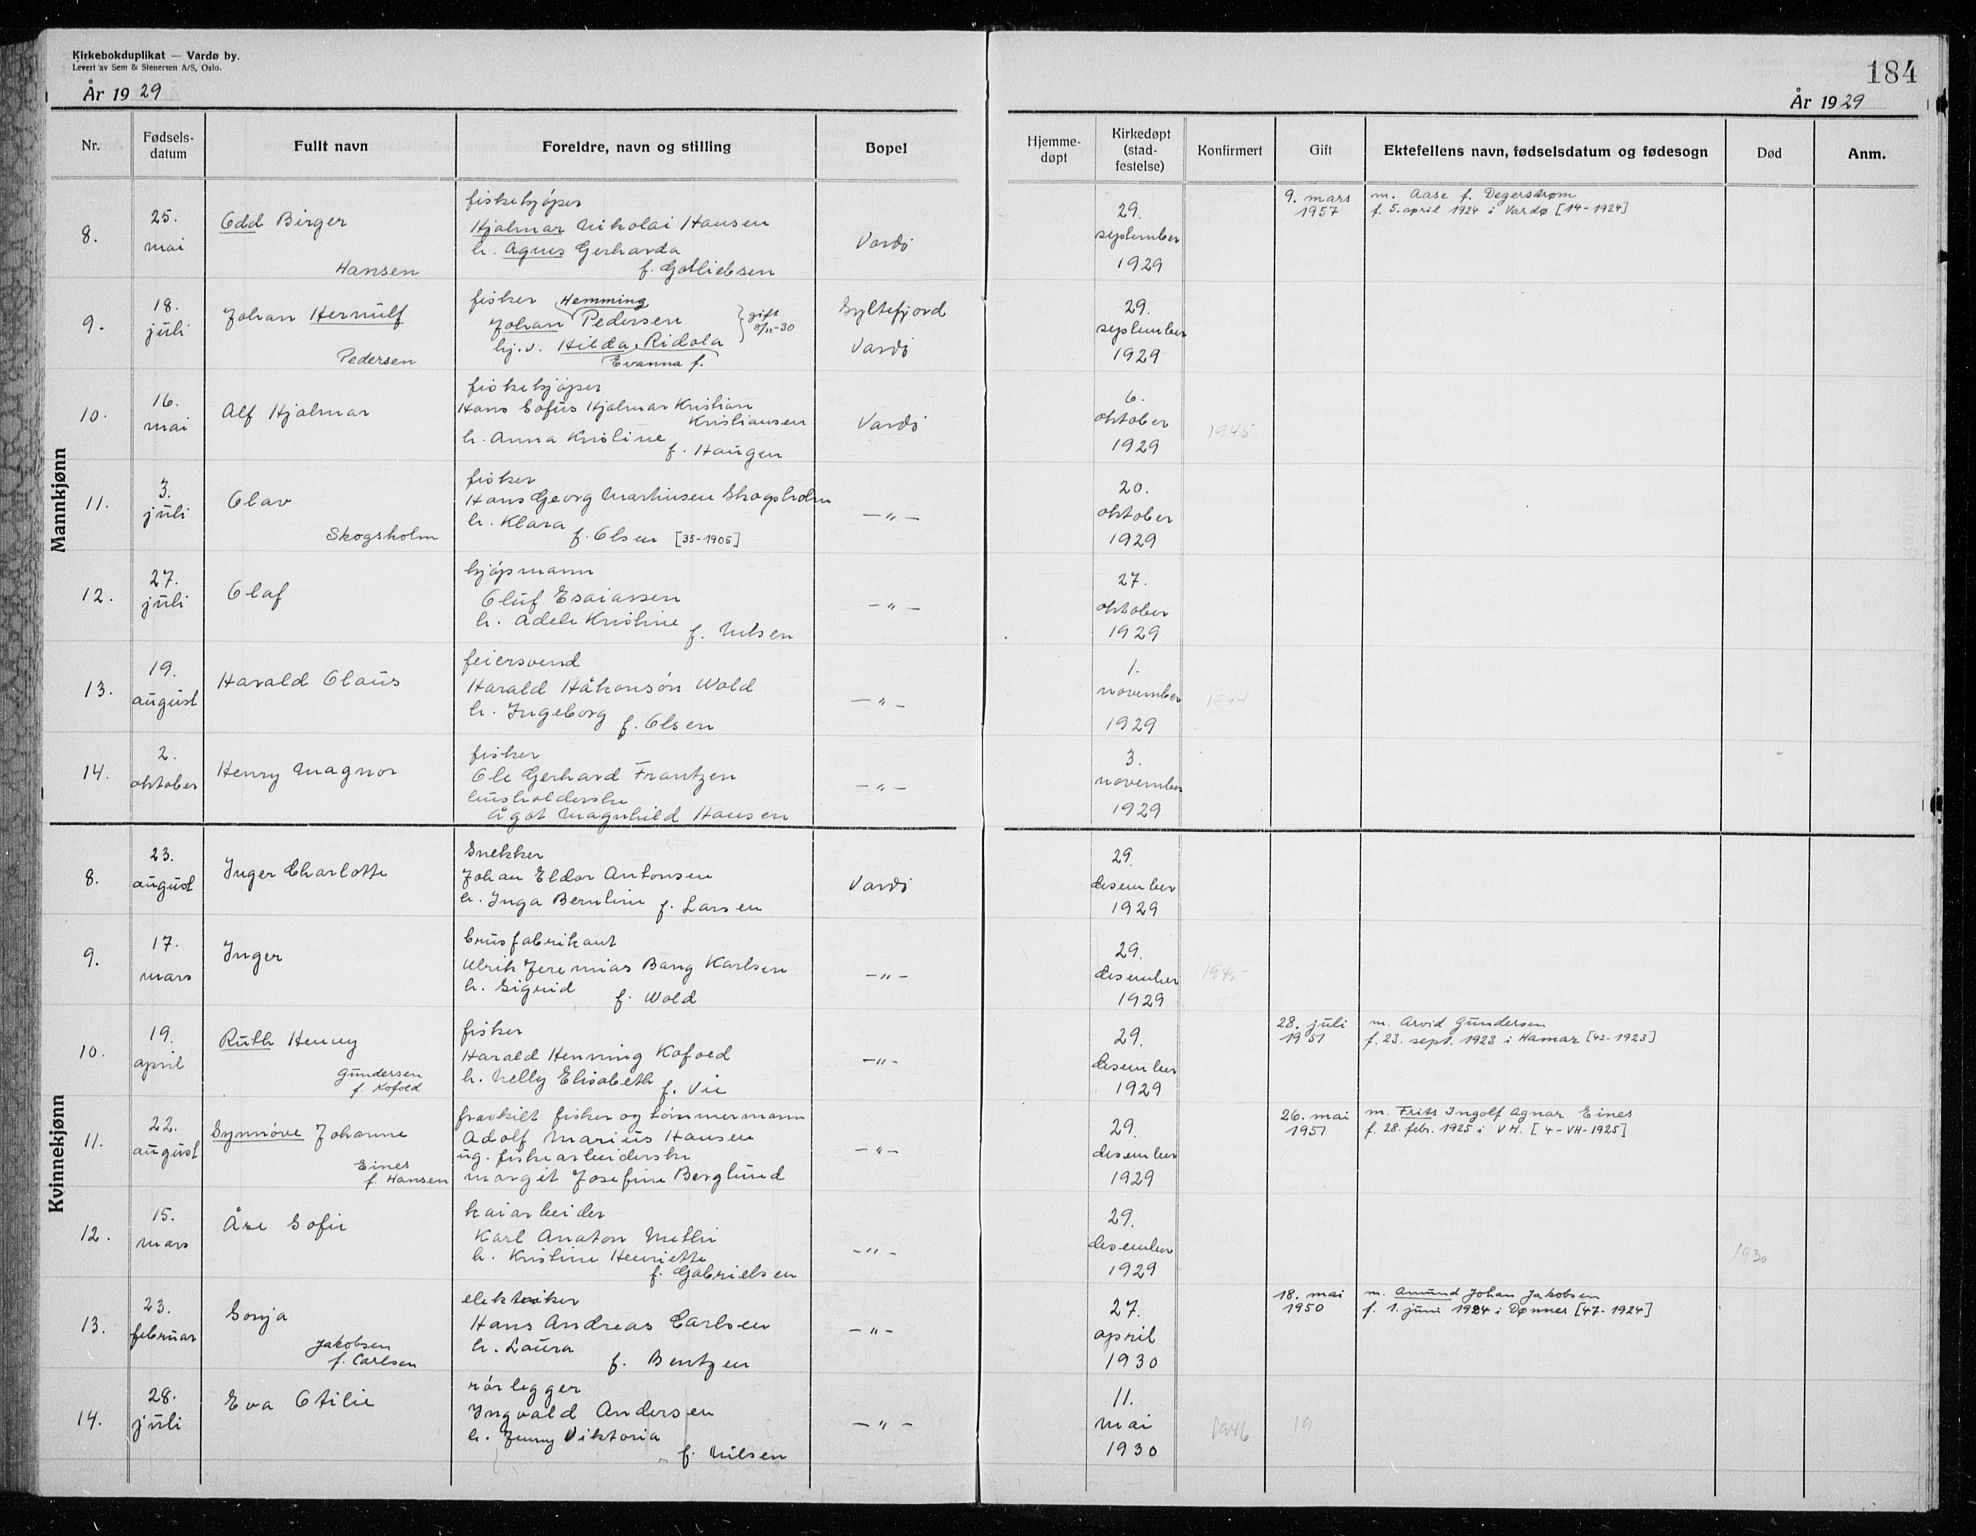 Kirkebokduplikat — Vardø by.
Levert av Sem & Stenersen A/S, Oslo.
År 1929
184
År 1929
Nr. Fødsels-datum Fullt navn Foreldre, navn og stilling Bopel Hjemme-døpt Kirkedøpt (stad-festelse) Konfirmert Gift Ektefellens navn, fødselsdatum og fødesogn Død Anm.
Mannkjønn
8. 25. mai
Odd Birger
Hansen
fiskekjøper
Hjalmar Nikolai Hansen
h. Agnes Gerharda
f. Gotliebsen
Vardø
29. september 1929
9. mars 1957
m. Aase f. Degerstrøm
f. 5. april 1924 i Vardø [14-1924]
9. 18. juli
Johan Hernulf
Pedersen
fisker Hemming
Johan Pedersen
hj.v. Hilda Ridola
Evanna f.
gift
Syltefjord
Vardø
29. september 1929
10. 16. mai
Alf Hjalmar
fiskekjøper
Hans Sofus Hjalmar Kristian
Kristiansen
h. Anna Kristine
f. Haugen
Vardø
6. oktober 1929
1945
11. 3. juli
Olav
Skogsholm
fisker
Hans Georg Martinsen Skogsholm
h. Klara
f. Olsen [35-1905]
—"—
20. oktober 1929
12. 27. juli
Olaf
kjøpmann
Oluf Esaiassen
h. Adele Kristine
f. Nilsen
—"—
27. oktober 1929
13. 19. august
Harald Olaus
feiersvend
Harald Håkonsøn Wold
h. Ingeborg f. Olsen
—"—
1. november 1929
1944
14. 2. oktober
Henry Magnor
fisker
Ole Gerhard Frantzen
husholderske
Ågot Magnhild Hansen
—"—
3. november 1929
Kvinnekjønn
8. 23. august
Inger Charlotte
Snekker
Johan Eldor Antonsen
h. Inga Berntine f. Larsen
Vardø
29. desember 1929
9. 17. mars
Inger
brusfabrikant
Ulrik Jeremias Bang Karlsen
h. Sigrid
f. Wold
—"—
29. desember 1929
1945
10. 19. april
Ruth Henny
Gundersen
f. Kofoed
fisker
Harald Henning Kofoed
h. Nelly Elisabeth
f. Vie
—"—
29. desember 1929
28. juli 1951
m. Arvid Gundersen
f. 23. sept. 1923 i Hamar [42-1923]
11. 22. august
Synnøve Johanne
Eines
f. Hansen
fraskilt fisker og tømmermann
Adolf Marius Hansen
ug. fiskearbeiderske
Margit Josefine Berglund
—"—
29. desember 1929
26. mai 1951
m. Frits Ingolf Agnar Eines
f. 28. febr. 1925 i VH. [4-VH-1925]
12. 15. mars
Åse Sofie
kaiarbeider
Karl Anaton Methi
h. Kristine Henriette
f. Gabrielsen
—"—
29. desember 1929
1930
13. 23. februar
Sonja
Jakobsen
f. Carlsen
elektriker
Hans Andreas Carlsen
h. Laura
f. Bentzen
—"—
27. april 1930
18. mai 1950
m. Amund Johan Jakobsen
f. 1. juni 1924 i Dønnes [47-1924]
14. 28. juli
Eva Otilie
rørlegger
Ingvald Andersen
h. Jenny Viktoria
f. Nilsen
—"—
11. mai 1930
1946
19